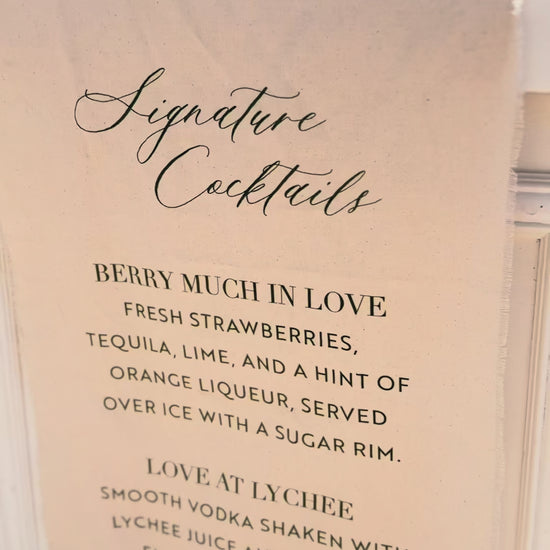 Signature
Cocktails
BERRY MUCH IN LOVE
FRESH STRAWBERRIES,
TEQUILA, LIME, AND A HINT OF
ORANGE LIQUEUR, SERVED
OVER ICE WITH A SUGAR RIM.
LOVE AT LYCHEE
SMOOTH VODKA SHAKEN WITH
LYCHEE JUICE